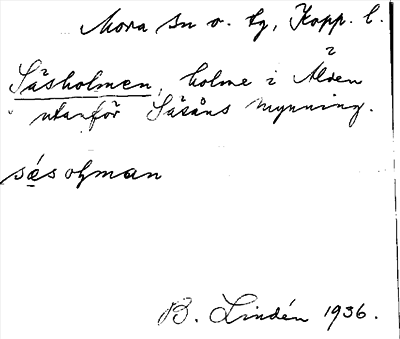 Mora sn o. tg, Kopp. l.
Såsholmen, holme i Älven
utanför Såsåns mynning.
såsoɫman
B. Lindén 1936.